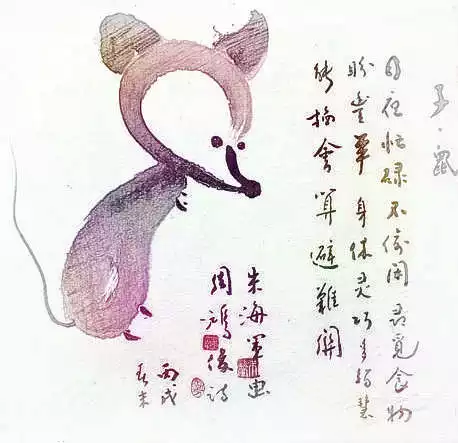 子·鼠
日夜忙碌不偷闲寻觅食物
盼身体灵巧多智慧
能掐會算避難關
朱海军画
周鸿俊诗
丙戌
春末